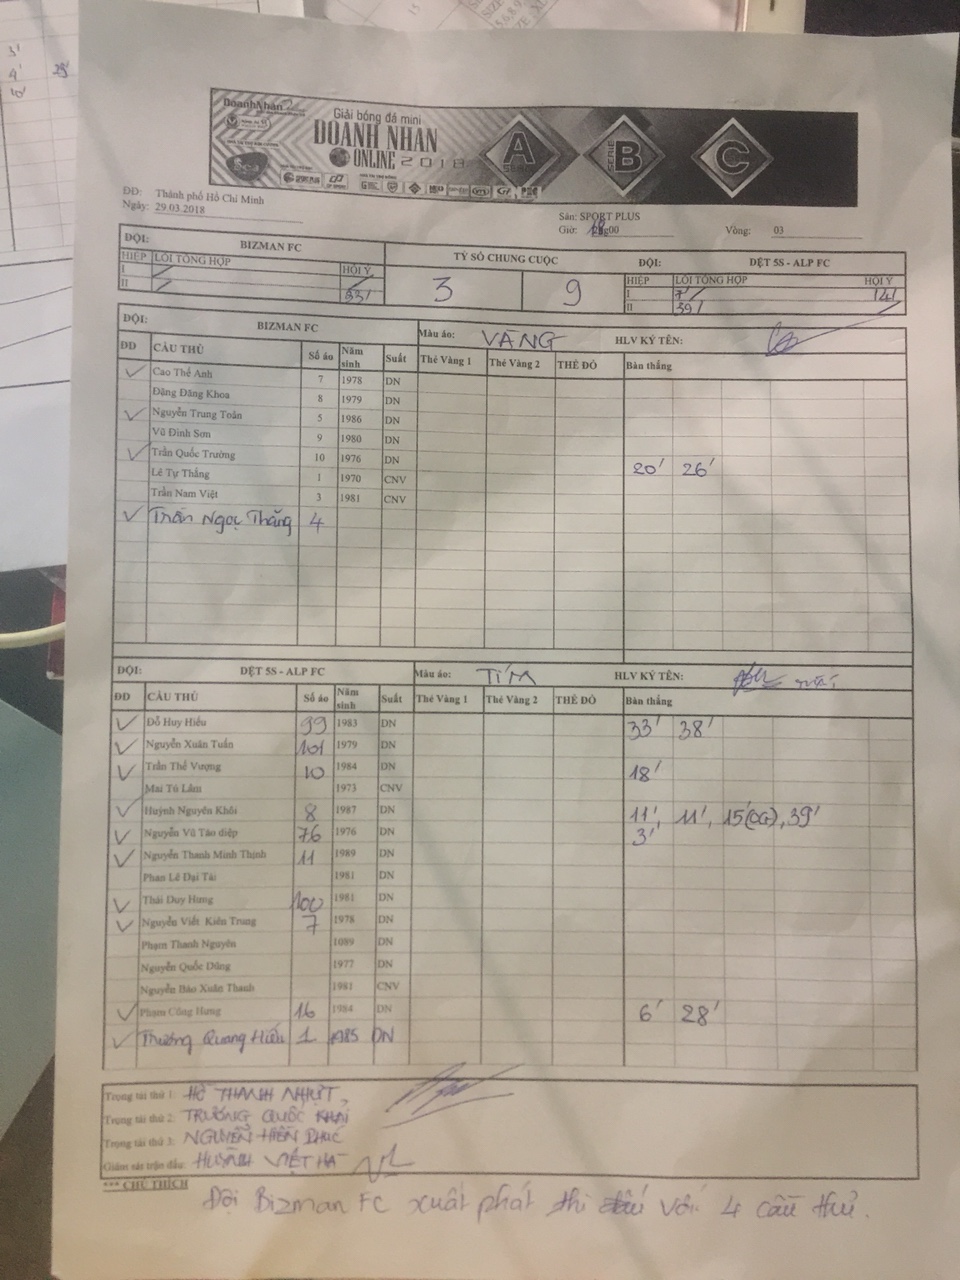 3'
4'
29'
10'
SIZE
DoanhNhân
Giải bóng đá mini
DOANH NHÂN
ONLINE 2018
SERIE A
SERIE B
SERIE C
ĐĐ: Thành phố Hồ Chí Minh
Ngày: 29.03.2018
Sân: SPORT PLUS
Giờ: 18g00 Vòng: 03
ĐỘI: BIZMAN FC TỶ SỐ CHUNG CUỘC ĐỘI: DỆT 5S - ALP FC
HIỆP LỖI TỔNG HỢP HỘI Ý 3 9 HIỆP LỖI TỔNG HỢP HỘI Ý
I I 7' 14'
II 33' II 39'
ĐỘI: BIZMAN FC Màu áo: VÀNG HLV KÝ TÊN:
ĐD CẦU THỦ Số áo Năm sinh Suất Thẻ Vàng 1 Thẻ Vàng 2 THẺ ĐỎ Bàn thắng
Cao Thế Anh 7 1978 DN
Đặng Đăng Khoa 8 1979 DN
Nguyễn Trung Toàn 5 1986 DN
Vũ Đình Sơn 9 1980 DN
Trần Quốc Trường 10 1976 DN 20' 26'
Lê Tự Thắng 1 1970 CNV
Trần Nam Việt 3 1981 CNV
Trần Ngọc Thắng 4
ĐỘI: DỆT 5S - ALP FC Màu áo: TÍM HLV KÝ TÊN:
ĐD CẦU THỦ Số áo Năm sinh Suất Thẻ Vàng 1 Thẻ Vàng 2 THẺ ĐỎ Bàn thắng
Đỗ Huy Hiếu 99 1983 DN 33' 38'
Nguyễn Xuân Tuấn 101 1979 DN
Trần Thế Vượng 10 1984 DN 18'
Mai Tú Lâm 1973 CNV
Huỳnh Nguyên Khôi 8 1987 DN 11', 11', 15'(OG), 39'
Nguyễn Vũ Tảo điệp 76 1976 DN 3'
Nguyễn Thanh Minh Thịnh 11 1989 DN
Phan Lê Đại Tài 1981 DN
Thái Duy Hưng 100 1981 DN
Nguyễn Viết Kiên Trung 7 1978 DN
Phạm Thanh Nguyên 1089 DN
Nguyễn Quốc Dũng 1977 DN
Nguyễn Bảo Xuân Thanh 1981 CNV
Phạm Công Hưng 16 1984 DN 6' 28'
Trương Quang Hiếu 1 1985 DN
Trọng tài thứ 1: HỒ THANH NHỰT
Trọng tài thứ 2: TRƯƠNG QUỐC KHẢI
Trọng tài thứ 3: NGUYỄN HIỀN PHÚC
Giám sát trận đấu: HUỲNH VIỆT HÀ
*** CHÚ THÍCH
Đội Bizman FC xuất phát thi đấu với 4 cầu thủ.